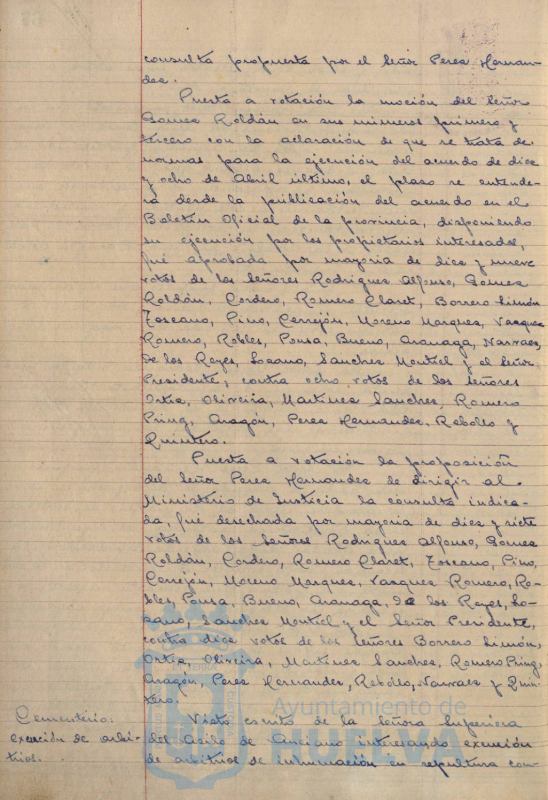 consulta propuesta por el Señor Perea Hernan-
dez.
Puesta a votación la moción del Señor
Gomez Roldán en sus números primero y
tercero con la aclaración de que se trata de
normas para la ejecución del acuerdo de diez
y ocho de Abril último, el plazo se entende-
ra desde la publicación del acuerdo en el
Boletin Oficial de la provincia, disponiendo
su ejecución por los propietarios interesados,
fué aprobada por mayoria de diez y nueve
votos de los Señores Rodriguez Alfonso, Gomez
Roldán, Cordero, Romero Claret, Borrero Limón
Toscano, Pino, Cerrejón, Moreno Marquez, Vazquez
Romero, Robles, Ponsa, Bueno, Aranaga, Narvaez,
De los Reyes, Lozano, Sanchez Montiel y el Señor
Presidente, contra ocho votos de los Señores
Ortiz, Oliveira, Martinez Sanchez, Romero
Pring, Aragón, Perea Hernandez, Rebollo y
Quintero.
Puesta a votación la proposición
del Señor Perea Hernandez de dirigir al
Ministerio de Justicia la consulta indica-
da, fué desechada por mayoria de diez y siete
votos de los Señores Rodriguez Alfonso, Gomez
Roldán, Cordero, Romero Claret, Toscano, Pino,
Cerrejón, Moreno Marquez, Vazquez Romero, Ro-
bles, Ponsa, Bueno, Aranaga, De los Reyes, Lo-
zano, Sanchez Montiel y el Señor Presidente,
contra diez votos de los Señores Borrero Limón,
Ortiz, Oliveira, Martinez Sanchez, Romero Pring,
Aragón, Perea Hernandez, Rebollo, Narvaez y Quin-
tero.
Cementerio:
exención de arbi-
trios.
Visto escrito de la Señora Superiora
del Asilo de Ancianos interesando exención
de arbitrios de inhumación en sepultura con-
Ayuntamiento de
HUELVA